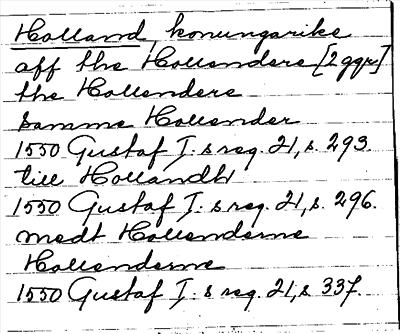 Holland, konungarike
aff the Hollenders [2 ggr]
the Hollenders
samme Hollender
1550 Gustaf I:s reg. 21, s. 293.
till Hollandh
1550 Gustaf I:s reg. 21, s. 296.
medt Hollenderne
Hollenderne
1550 Gustaf I:s reg. 21, s. 337.